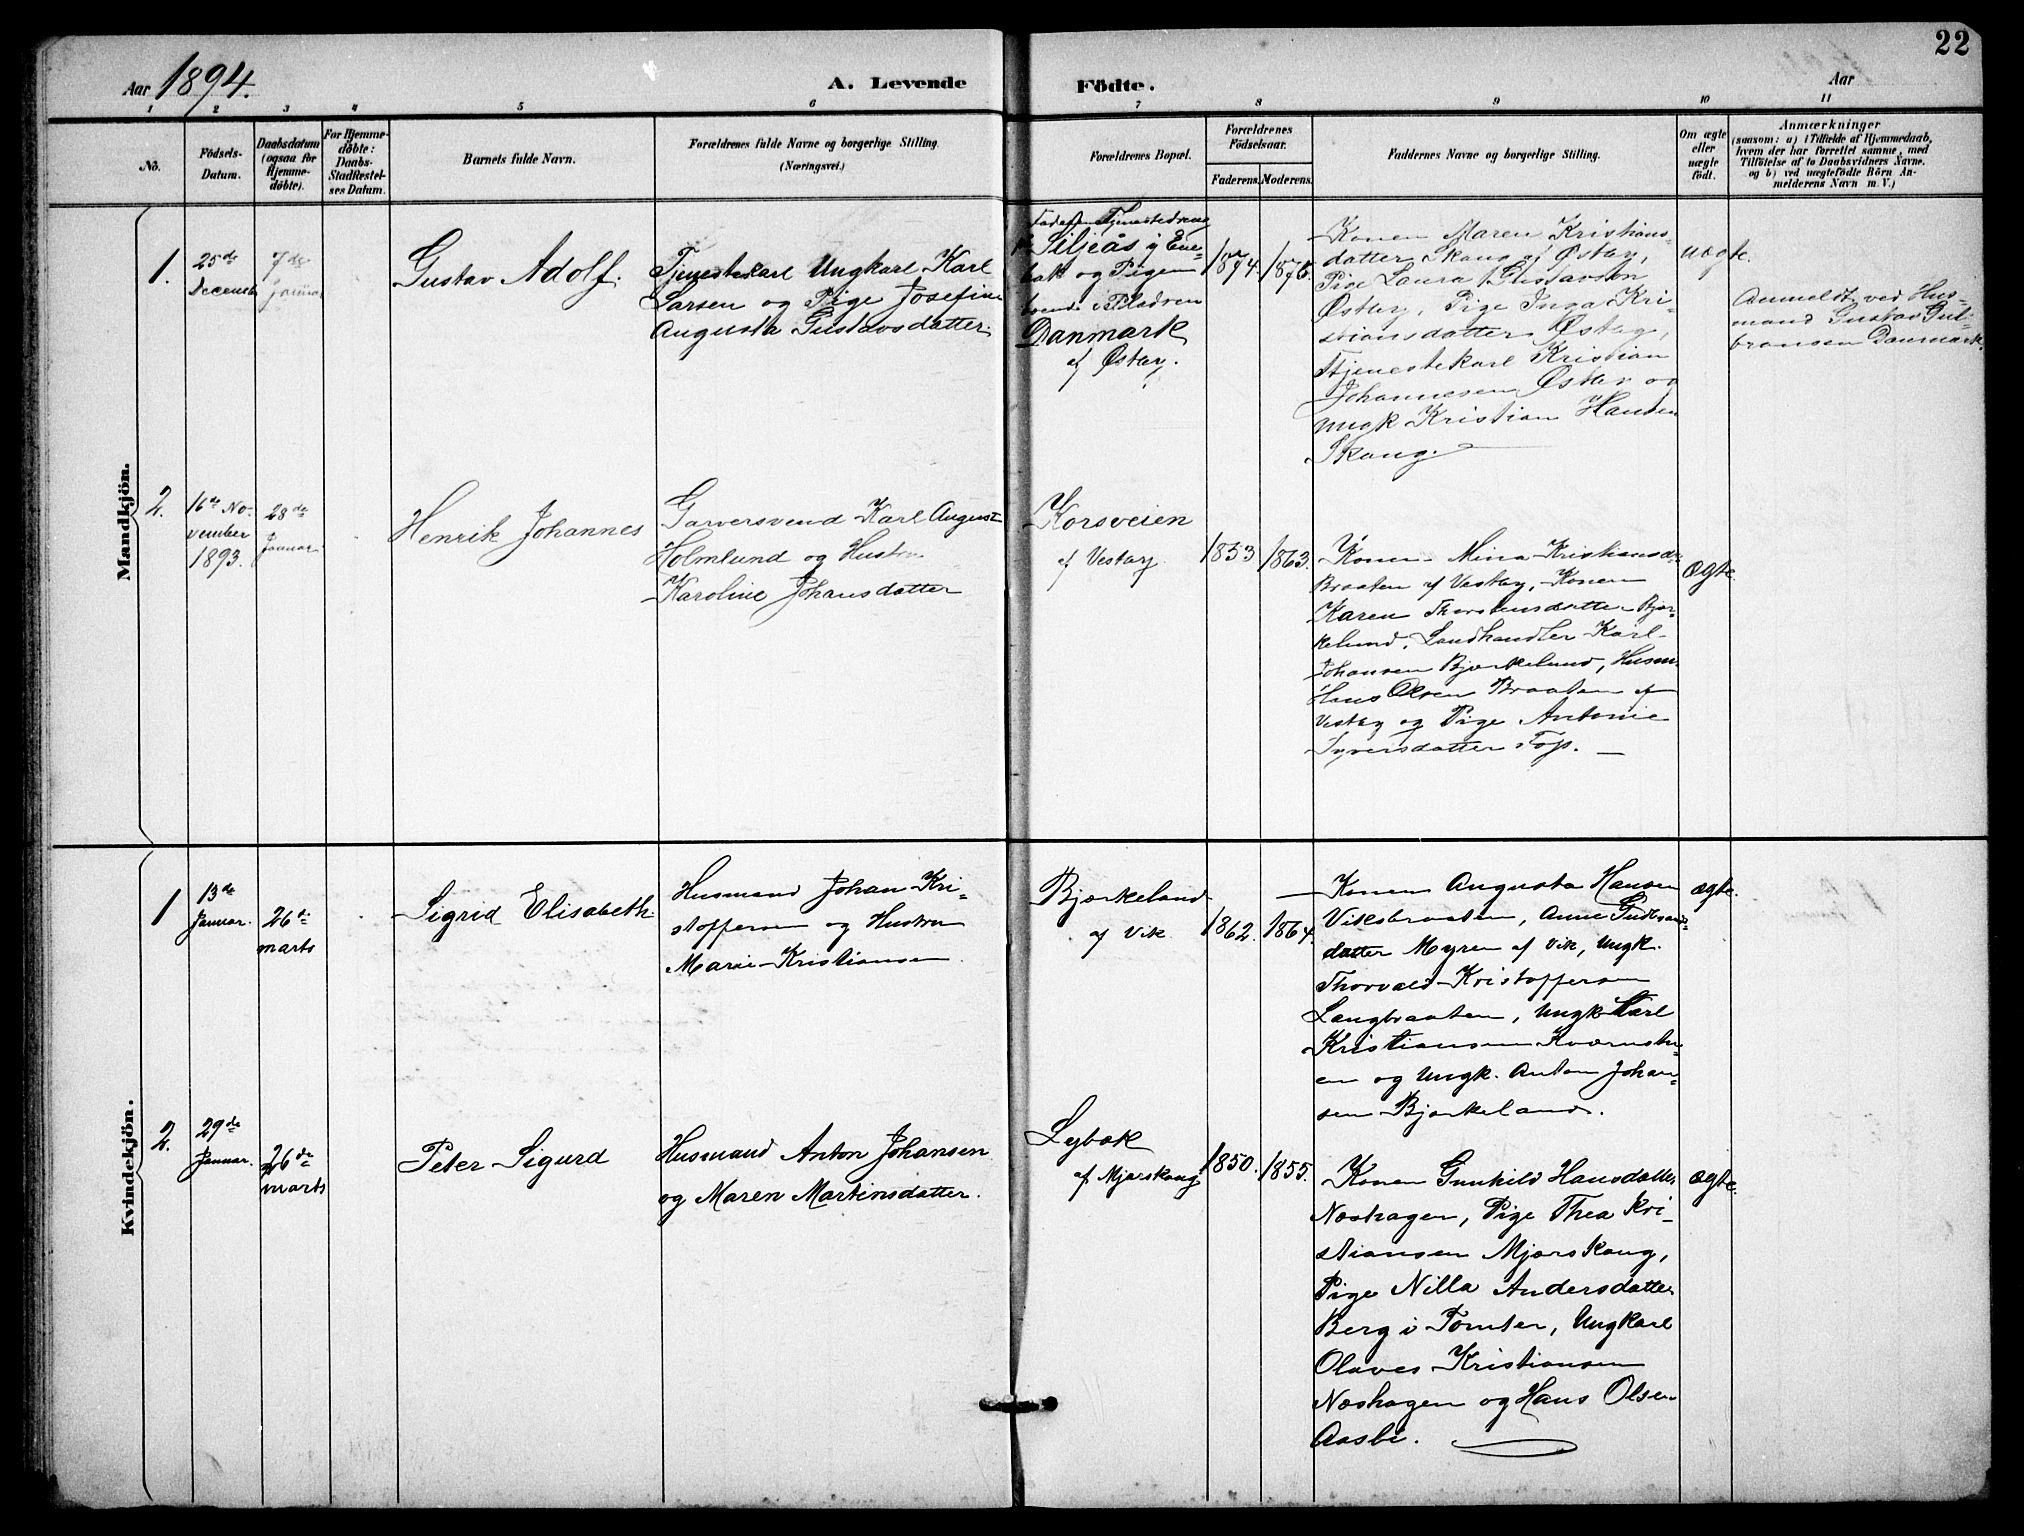 22
Aar 1894.
A. Levende Födte.
Aar
1 2 3 4 5 6 7 8 9 10 11
No.
Födsels-
Datum.
Daabsdatum
(ogsaa for
Hjemme-
døbte).
For Hjemme-
døbte:
Daabs-
Stadfæstel-
ses Datum.
Barnets fulde Navn.
Forældrenes fulde Navne og borgerlige Stilling.
(Næringsvei.)
Forældrenes Bopæl.
Forældrenes
Födselsaar.
Faderens. Moderens.
Faddernes Navne og borgerlige Stilling.
Om ægte
eller
uægte
födt.
Anmærkninger
(saasom: a) i Tilfælde af Hjemmedaab,
hvem der har forrettet samme, med
Tilföielse af to Daabsvidners Navne.
og b) ved uægtefödte Börn An-
melderens Navn m. V.)
Mandkjön.
1.
25de
Decemb
7de
Januar
Gustav Adolf.
Tjenestekarl Ungkarl Karl
Larsen og Pige Josefine
Augusta Gustavsdatter.
Faderen Tjenestedreng
Siljeås i Ene-
bak og Pigen
boende i Pladsen
Danmark
af Østby.
1874. 1876.
Konen Maren Kristians-
datter Skaug af Østby,
Pige Laura Gustavsen
Østby, Pige Inga Kri-
stiansdatter Østby,
Tjenestekarl Kristian
Johannesen Østby og
Ungk Kristian Hansen
Skaug.
uægte.
Anmeldt ved Hus-
mand Gustav Gul-
bransen Danmark.
2.
16de No-
vember
1893.
28de
Januar
Henrik Johannes
Garversvend Karl August
Holmlund og Hustru
Karoline Johansdatter
Korsveien
af Vestby
1853 1863.
Konen Mina Kristiansd.
Braaten af Vestby, Konen
Karen Thorstensdatter Bjør-
kelund, Landhandler Karl
Johansen Bjørkelund, Husm.
Hans Olsen Braaten af
Vestby og Pige Antonie
Syversdatter Fos.
ægte.
Kvindekjön.
1
13de
Januar.
26de
marts
Sigrid Elisabeth.
Husmand Johan Kri-
stoffersen og Hustru
Marie Kristiansen.
Bjørkeland
af Vik
1862. 1864.
Konen Augusta Hansen
Viksbraaten, Anne Gudbrands-
datter Myren af Vik, Ungk.
Thorvald Kristoffersen
Langbraaten, Ungk Karl
Kristiansen Kværnstu-
en og Ungk. Anton Johan-
sen Bjørkeland.
ægte.
2.
29de
Januar.
26de
marts
Peter Sigurd
Husmand Anton Johansen
og Maren Martinsdatter.
Lybæk
af Mjørskaug
1850. 1855.
Konen Gunhild Hansdatter
Næshagen, Pige Thea Kri-
stiansen Mjørskaug,
Pige Nilla Andersdatter
Berg i Tomter, Ungkarl
Olaves Kristiansen
Næshagen og Hans Olsen
Aasbe.
ægte.